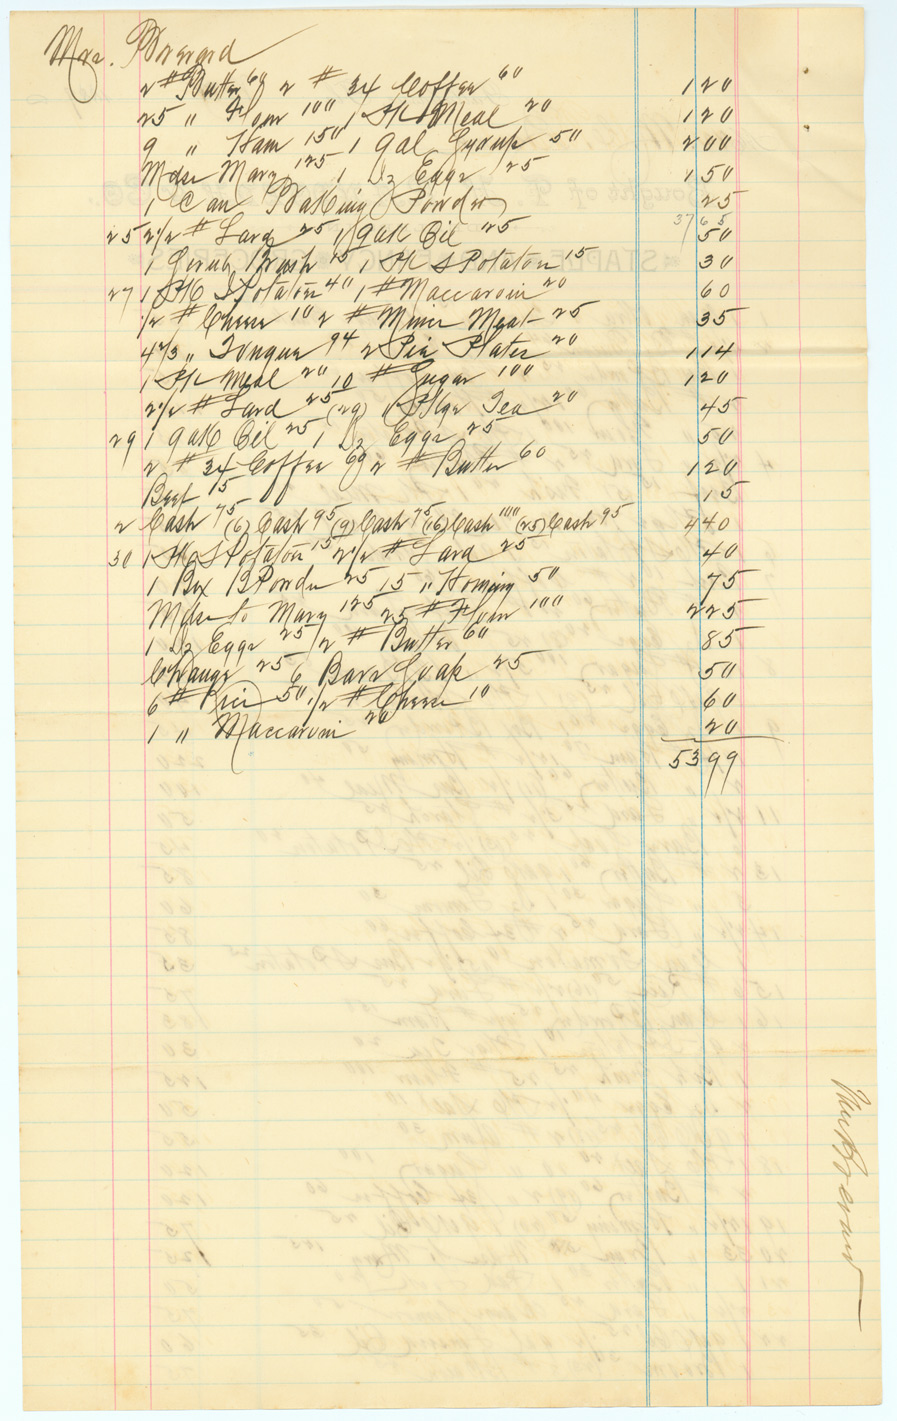 Mrs. Brevard
2 # Butter 60 2 # 34 Coffee 60 1 20
25 " Flour 100 1 Pk Meal 20 1 20
9 " Ham 150 1 gal Syrup 50 2 00
Mdse Mary 125 1 Dz Eggs 25 1 50
1 Can Baking Powder 25
37 65
25 2 1/2 # Lard 25 1 gal Oil 25 50
1 Scrub Brush 15 1 Pk S Potatoes 15 30
27 1 Pk I Potatoes 40 1 # Maccaroni 20 60
1/2 # Cheese 10 2 # Mince Meat 25 35
4 2/3 " Tongue 94 2 Pie Plates 20 1 14
1 Pk Meal 20 10 # Sugar 100 1 20
2 1/2 # Lard 25 (29) 1 Pkge Tea 20 45
29 1 gal Oil 25 1 Dz Eggs 25 50
2 # 34 Coffee 60 2 # Butter 60 1 20
Beef 15 15
2 Cash 75 (6) Cash 95 (9) Cash 75 (16) Cash 100 (25) Cash 95 4 40
30 1 Pk S Potatoes 15 2 1/2 # Lard 25 40
1 Box B Powder 25 15 " Hominy 50 75
Mdse to Mary 125 25 # Flour 100 2 25
1 Dz Eggs 25 2 # Butter 60 85
25 6 Bars Soap 25 50
6 # Rice 50 1/2 # Cheese 10 60
1 " Maccaroni 20 20
53 99
Mrs Brevard